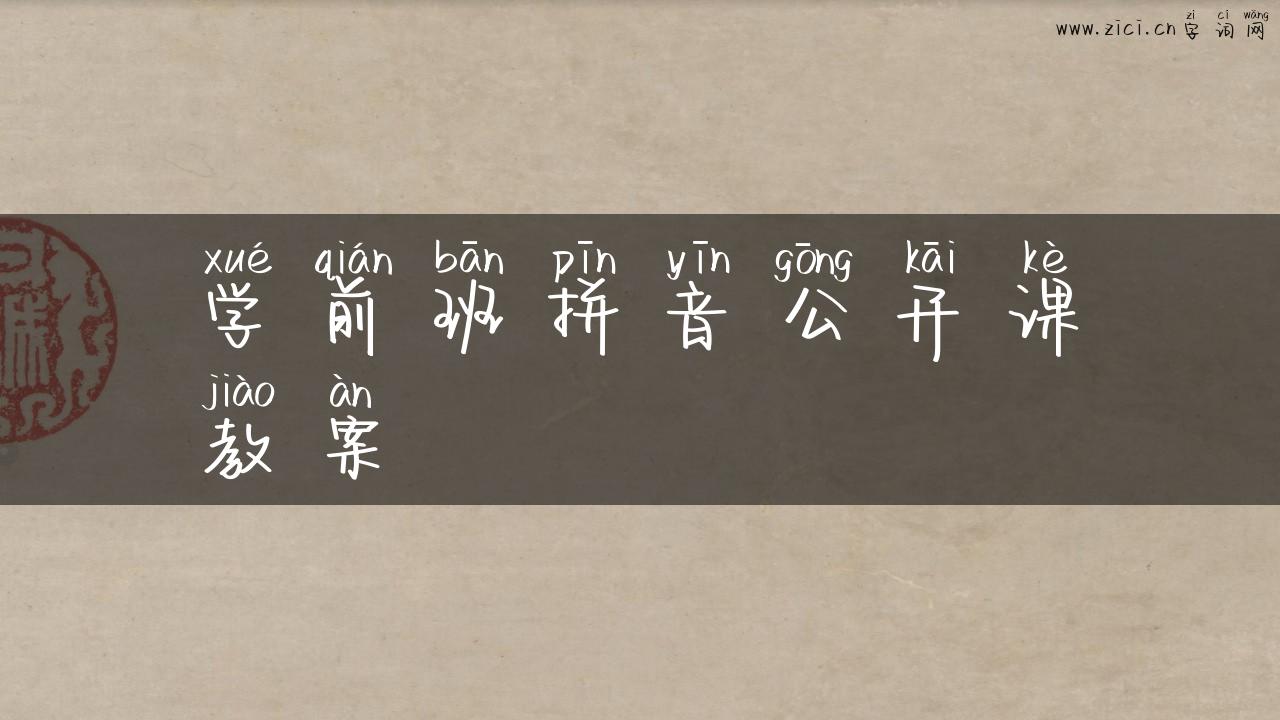 zì cí wǎng
www.zici.cn 字 词 网
xué qián bān pīn yīn gōng kāi kè
学 前 班 拼 音 公 开 课
jiào àn
教 案